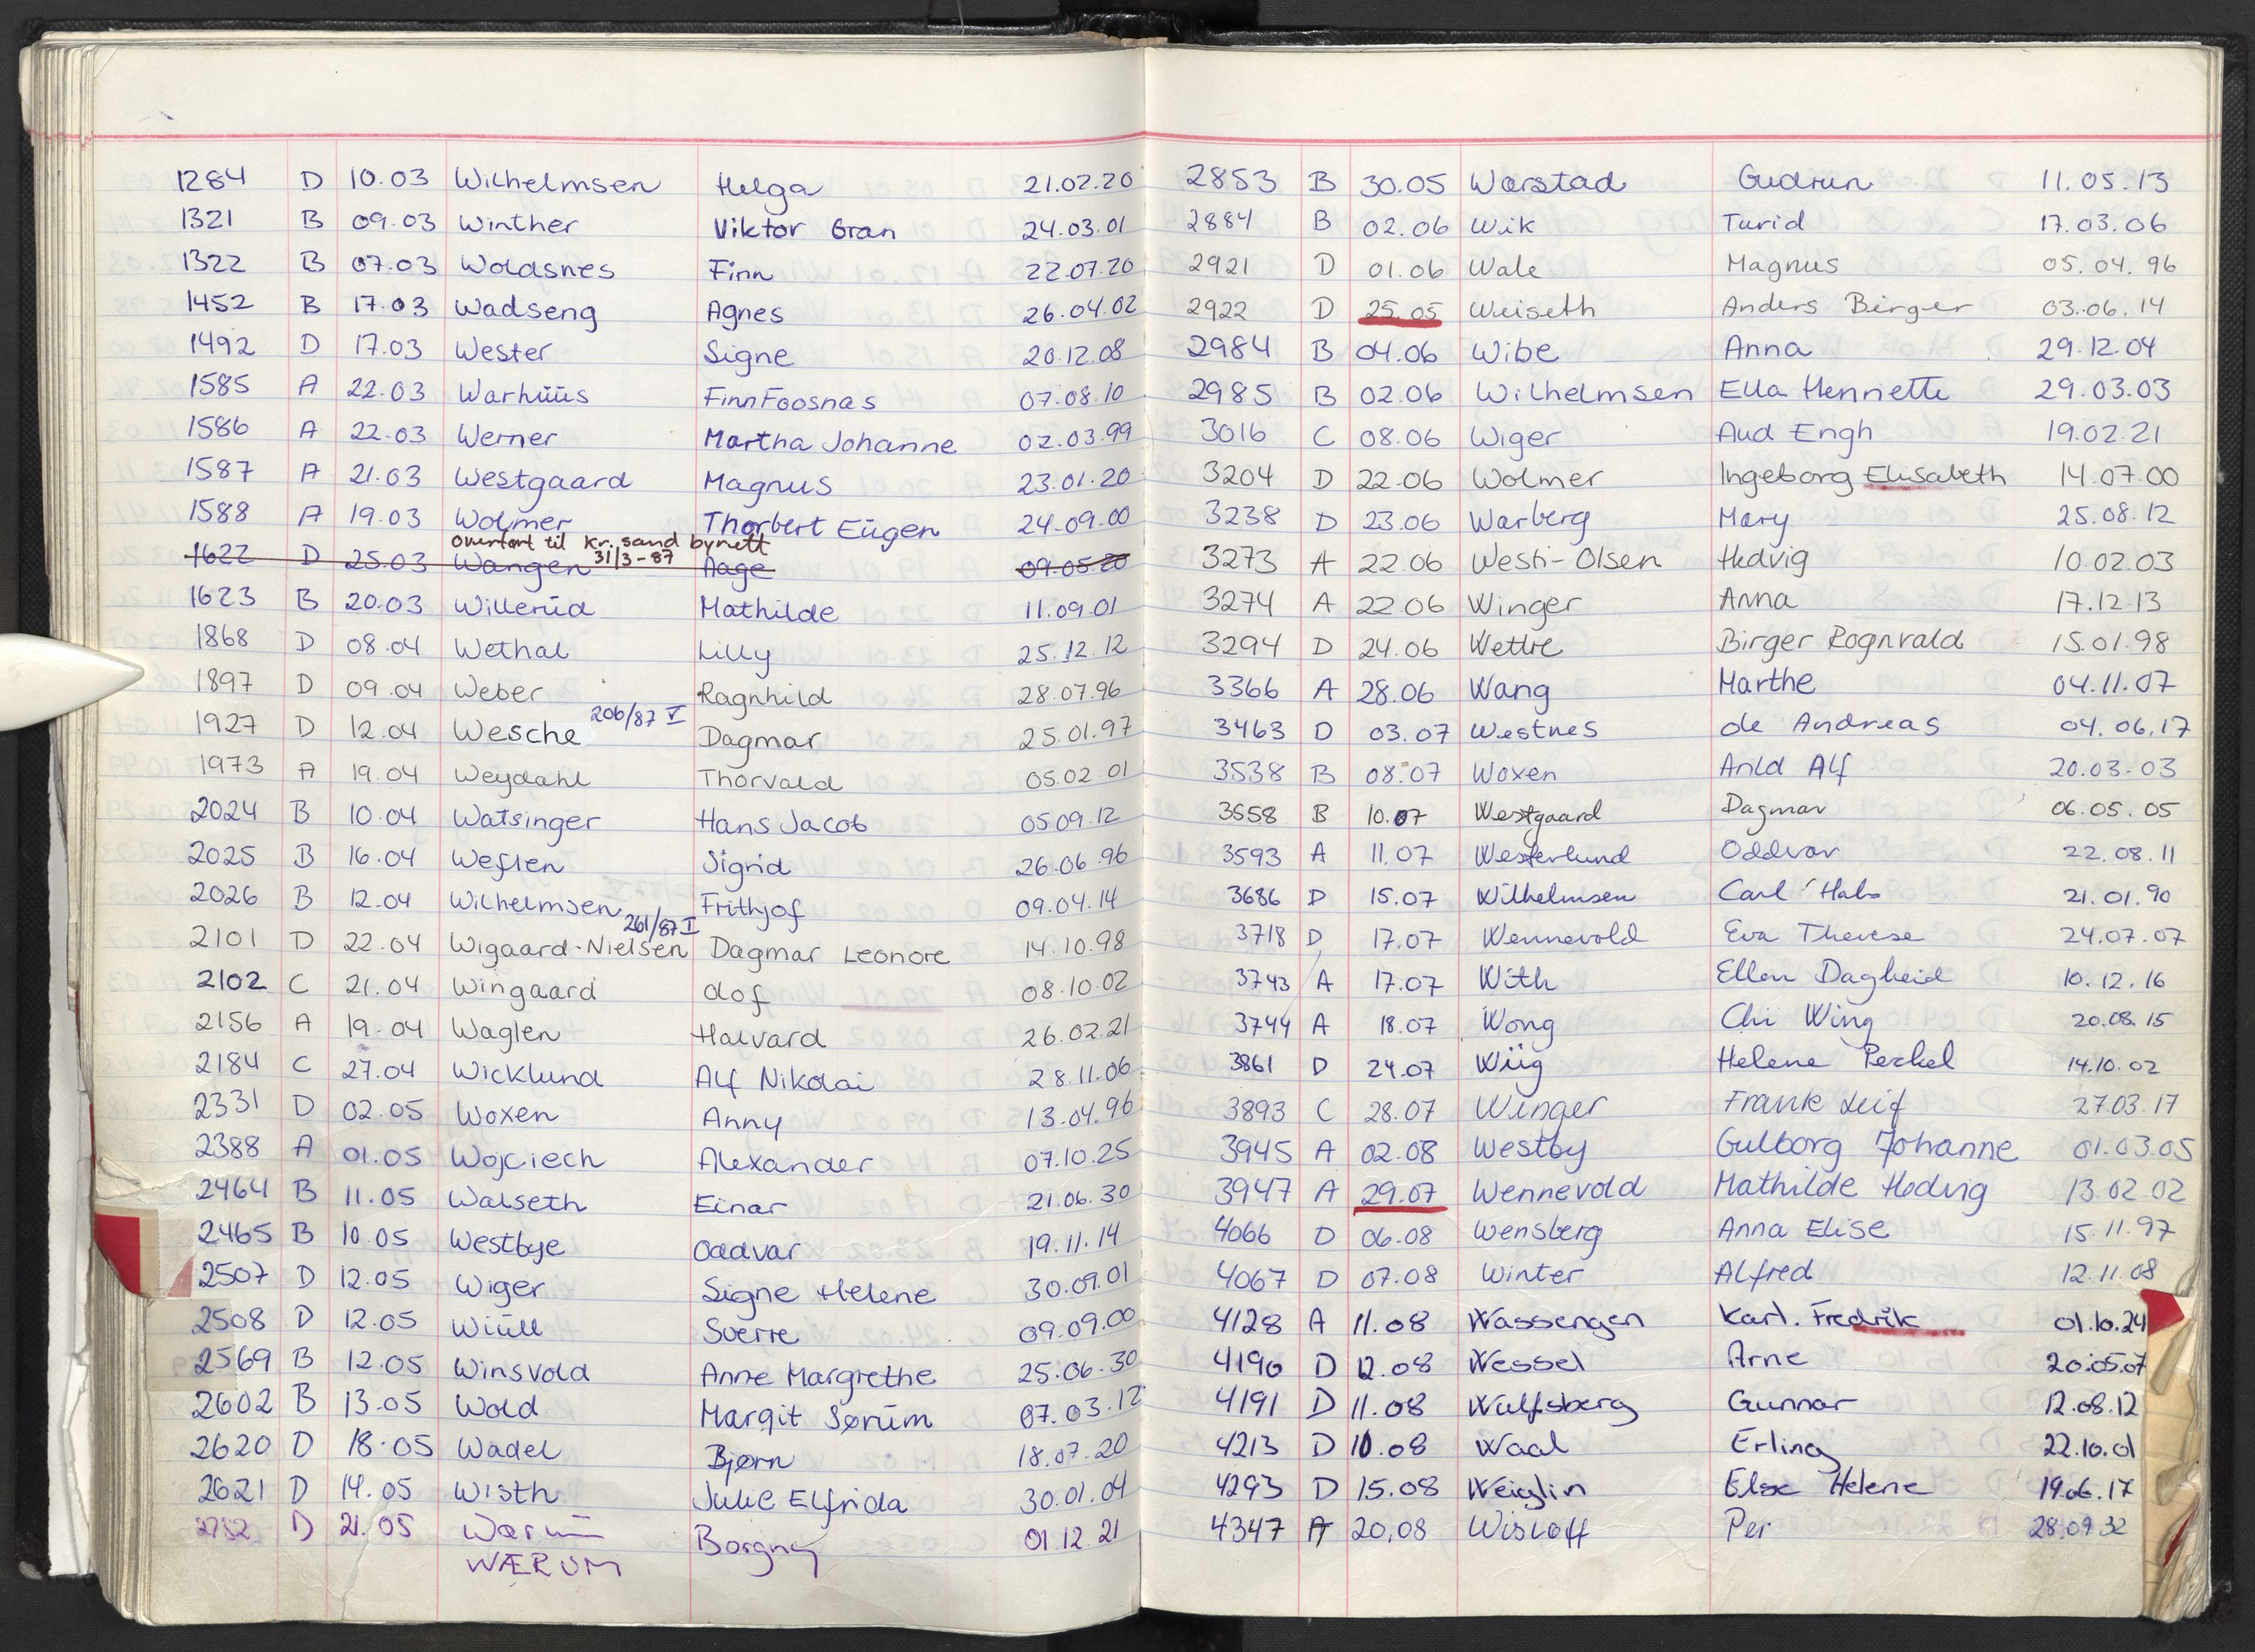 1284 D 10.03 Wilhelmsen Helga 21.02.20
1321 B 09.03 Winther Viktor Gran 24.03.01
1322 B 07.03 Woldsnes Finn 22.07.20
1452 B 17.03 Wadseng Agnes 26.04.02
1492 D 17.03 Wester Signe 20.12.08
1585 A 22.03 Warhüüs Finn Foosnas 07.08.10
1586 A 22.03 Werner Martha Johanne 02.03.99
1587 A 21.03 Westgaard Magnus 23.01.20
1588 A 19.03 Wolmer Thorbert Eügen 24.09.00
overført til kr.sand bynett
1622 D 25.03 Wangen 31/3-87 Aage 09.05.20
1623 B 20.03 Willerüd Mathilde 11.09.01
1868 D 08.04 Wethal Lilly 25.12.12
1897 D 09.04 Weber Ragnhild 28.07.96
1927 D 12.04 Wesche 206/87 V Dagmar 25.01.97
1973 A 19.04 Weydahl Thorvald 05.02.01
2024 B 10.04 Watsinger Hans Jacob 05.09.12
2025 B 16.04 Weflen Sigrid 26.06.96
2026 B 12.04 Wilhelmsen Frithjof 09.04.14
261/87 I
2101 D 22.04 Wigaard-Nielsen Dagmar Leonore 14.10.98
2102 C 21.04 Wingaard Olof 08.10.02
2156 A 19.04 Waglen Halvard 26.02.21
2184 C 27.04 Wicklund Alf Nikolai 28.11.06
2331 D 02.05 Woxen Anny 13.04.96
2388 A 01.05 Wojciech Alexander 07.10.25
2464 B 11.05 Walseth Einar 21.06.30
2465 B 10.05 Westbye Oddvar 19.11.14
2507 D 12.05 Wiger Signe Helene 30.09.01
2508 D 12.05 Wiüll Sverre 09.09.00
2569 B 12.05 Winsvold Anne Margrethe 25.06.30
2602 B 13.05 Wold Margit Sørüm 07.03.12
2620 D 18.05 Wadel Bjørn 18.07.20
2621 D 14.05 Wisth Julie Elfrida 30.01.04
2752 D 21.05 Wærum Borgny 01.12.21
WÆRUM
2853 B 30.05 Warstad Gudrun 11.05.13
2884 B 02.06 Wik Turid 17.03.06
2921 D 01.06 Wale Magnus 05.04.96
2922 D 25.05 Weiseth Anders Birger 03.06.14
2984 B 04.06 Wibe Anna 29.12.04
2985 B 02.06 Wilhelmsen Ella Hennette 29.03.03
3016 C 08.06 Wiger Aud Engh 19.02.21
3204 D 22.06 Wolmer Ingeborg Elisabeth 14.07.00
3238 D 23.06 Warberg Mary 25.08.12
3273 A 22.06 Westi-Olsen Hedvig 10.02.03
3274 A 22.06 Winger Anna 17.12.13
3294 D 24.06 Wettre Birger Rognvald 15.01.98
3366 A 28.06 Wang Marthe 04.11.07
3463 D 03.07 Westnes de Andreas 04.06.17
3538 B 08.07 Woxen Arild Alf 20.03.03
3558 B 10.07 Westgaard Dagmar 06.05.05
3593 A 11.07 Westerlund Oddvar 22.08.11
3686 D 15.07 Wilhelmsen Carl 21.01.90
3718 D 17.07 Wennevold Eva Therese 24.07.07
3743 A 17.07 With Ellen Dagheid 10.12.16
3744 A 18.07 Wong Chi Wing 20.08.15
3861 D 24.07 Wiig Helene 14.10.02
3893 C 28.07 Winger Frank Leif 27.03.17
3945 A 02.08 Westby Gulborg Johanne 01.03.05
3947 A 29.07 Wennevold Mathilde Hedvig 13.02.02
4066 D 06.08 Wensberg Anna Elise 15.11.97
4067 D 07.08 Winter Alfred 12.11.08
4128 A 11.08 Wassengen Karl. Fredrik 01.10.24
4190 D 12.08 Wessel Arne 20.05.07
4191 D 11.08 Wulfsberg Gunnar 12.08.12
4213 D 10.08 Waal Erling 22.10.01
4293 D 15.08 Weiglin Else Helene 19.06.17
4347 A 20.08 Wisløff Per 28.09.32